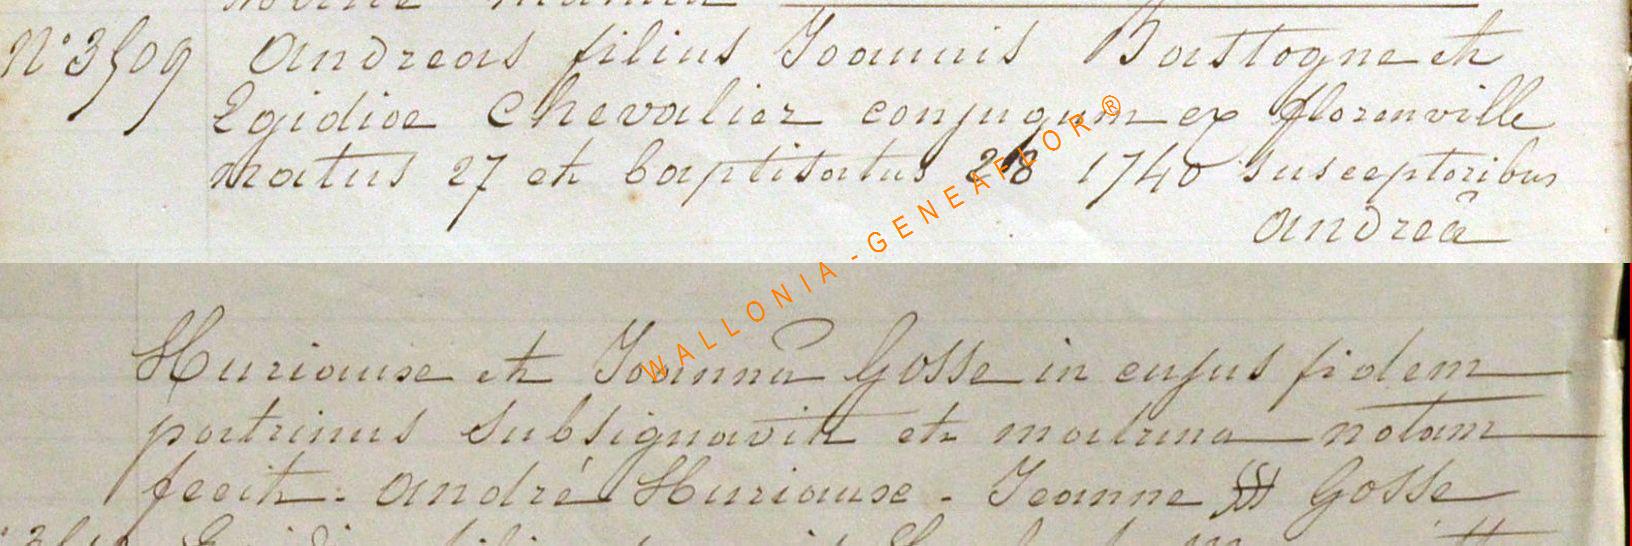 N° 3509 Andreas filius Joannis Bastogne et
Egidiae Chevalier conjugum ex florenville
natus 27 et baptisatus 28 1740 susceptoribus
Andreâ
WALLONIA - GENEAFLOR®
Huriause et Joannâ Gosse in cujus fidem
patrinus subsignavit et matrina notam
fecit. André Huriause - Jeanne Gosse